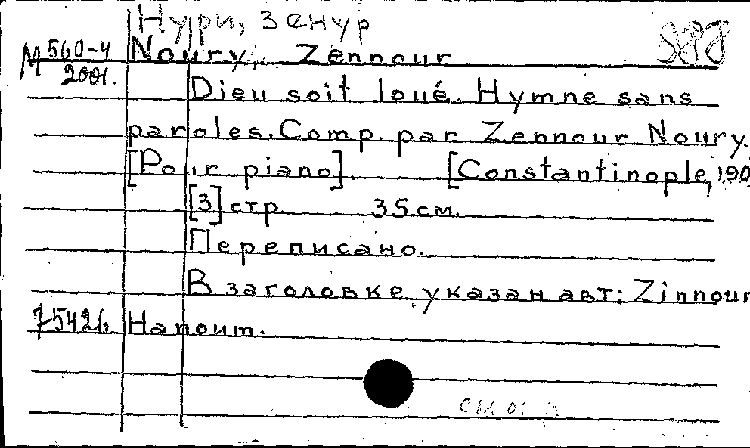 Нури, Зенур
М 560-4 Noury, Zennour
2001.
Dieu soit loué. Hymne sans
paroles. Comp. par Zennour Noury.
[Pour piano]. [Constantinople, 190
[3] стр. 35 см.
Переписано.
В заголовке указан авт: Zinnour
Hanoum.